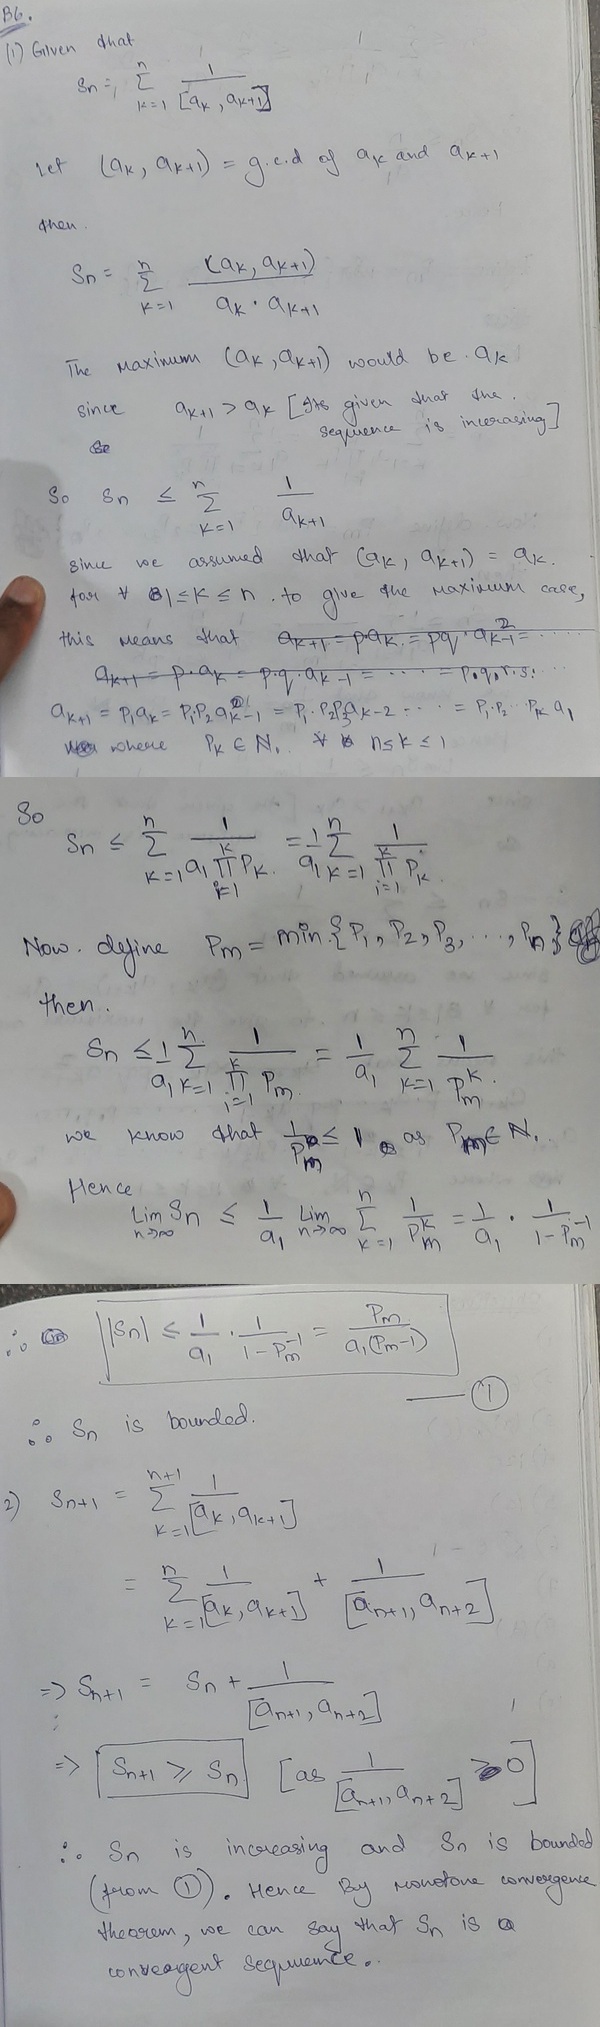 B6.
(1) Given that
Sn = Σ_{k=1}^{n} 1/[ak, ak+1]
Let (ak, ak+1) = g.c.d of ak and ak+1
then.
Sn = Σ_{k=1}^{n} (ak, ak+1) / ak · ak+1
The maximum (ak, ak+1) would be ak
since ak+1 > ak [Its given that the
sequence is increasing]
So Sn ≤ Σ_{k=1}^{n} 1/ak+1
since we assumed that (ak, ak+1) = ak.
for ∀ 1 ≤ k ≤ n. to give the maximum case,
this means that ak+1 = p·ak = pq·ak-1² = ...
ak+1 = p·ak = p·q·ak-1 = ... = p.q.r.s. ...
ak+1 = P1ak = P1P2ak-1 = P1·P2P3ak-2 ... = P1·P2···Pk a1
where Pk ∈ N, ∀ n ≤ k ≤ 1
So
Sn ≤ Σ_{k=1}^{n} 1/(a1 Π_{k=1}^{k} Pk) = 1/a1 Σ_{k=1}^{n} 1/(Π_{i=1}^{k} Pk)
Now. define Pm = min {P1, P2, P3, ..., Pn}
then.
Sn ≤ 1/a1 Σ_{k=1}^{n} 1/(Π_{i=1}^{k} Pm) = 1/a1 Σ_{k=1}^{n} 1/Pm^k
we know that 1/Pm ≤ 1 as Pm ∈ N.
Hence
Lim_{n→∞} Sn ≤ 1/a1 Lim_{n→∞} Σ_{k=1}^{n} 1/Pm^k = 1/a1 · 1/(1-Pm^-1)
∴ |Sn| ≤ 1/a1 · 1/(1-Pm^-1) = Pm/(a1(Pm-1))
— ①
∴ Sn is bounded.
2) Sn+1 = Σ_{k=1}^{n+1} 1/[ak, ak+1]
= Σ_{k=1}^{n} 1/[ak, ak+1] + 1/[an+1, an+2]
=> Sn+1 = Sn + 1/[an+1, an+2]
=> Sn+1 ≥ Sn [as 1/[an+1, an+2] > 0]
∴ Sn is increasing and Sn is bounded
(from ①). Hence By monotone convergence
theorem, we can say that Sn is a
convergent sequence..